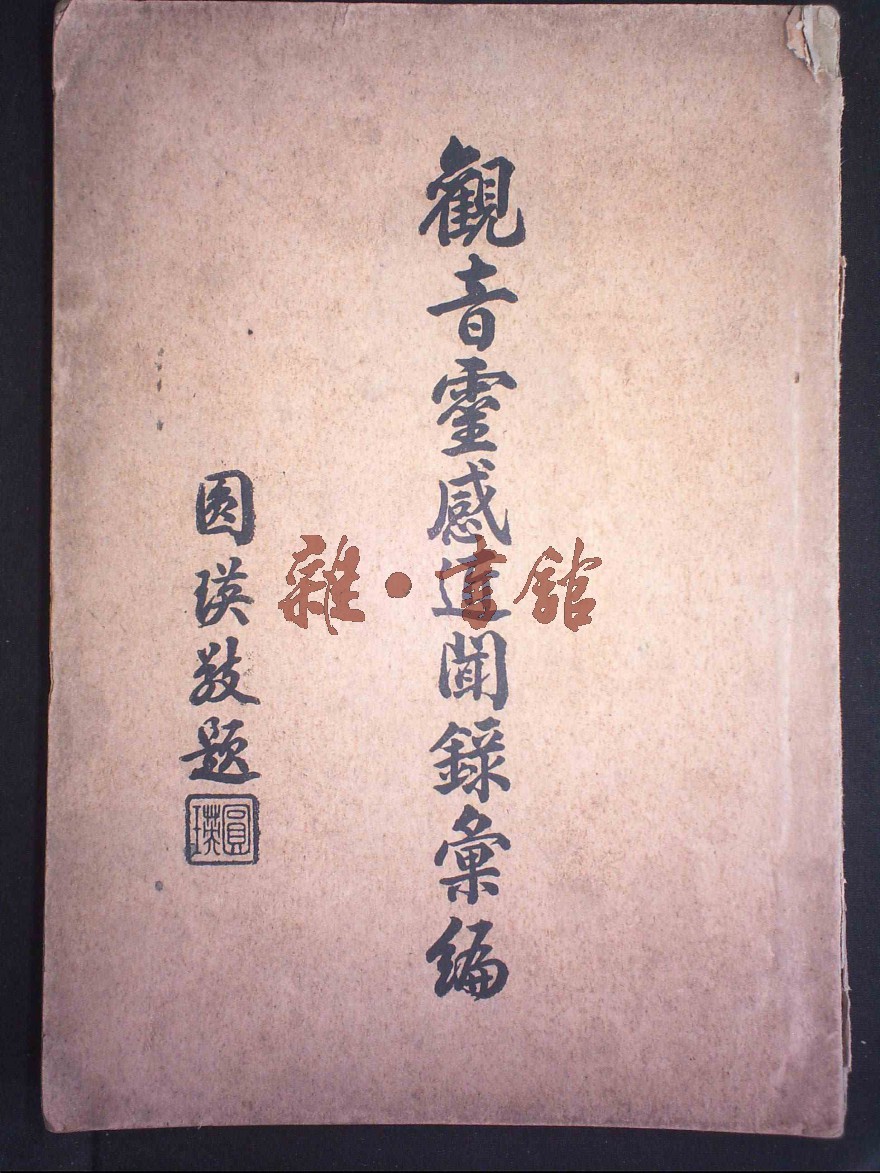 觀音靈感近聞錄彙編
圓瑛敬題
圓瑛
雜·書館